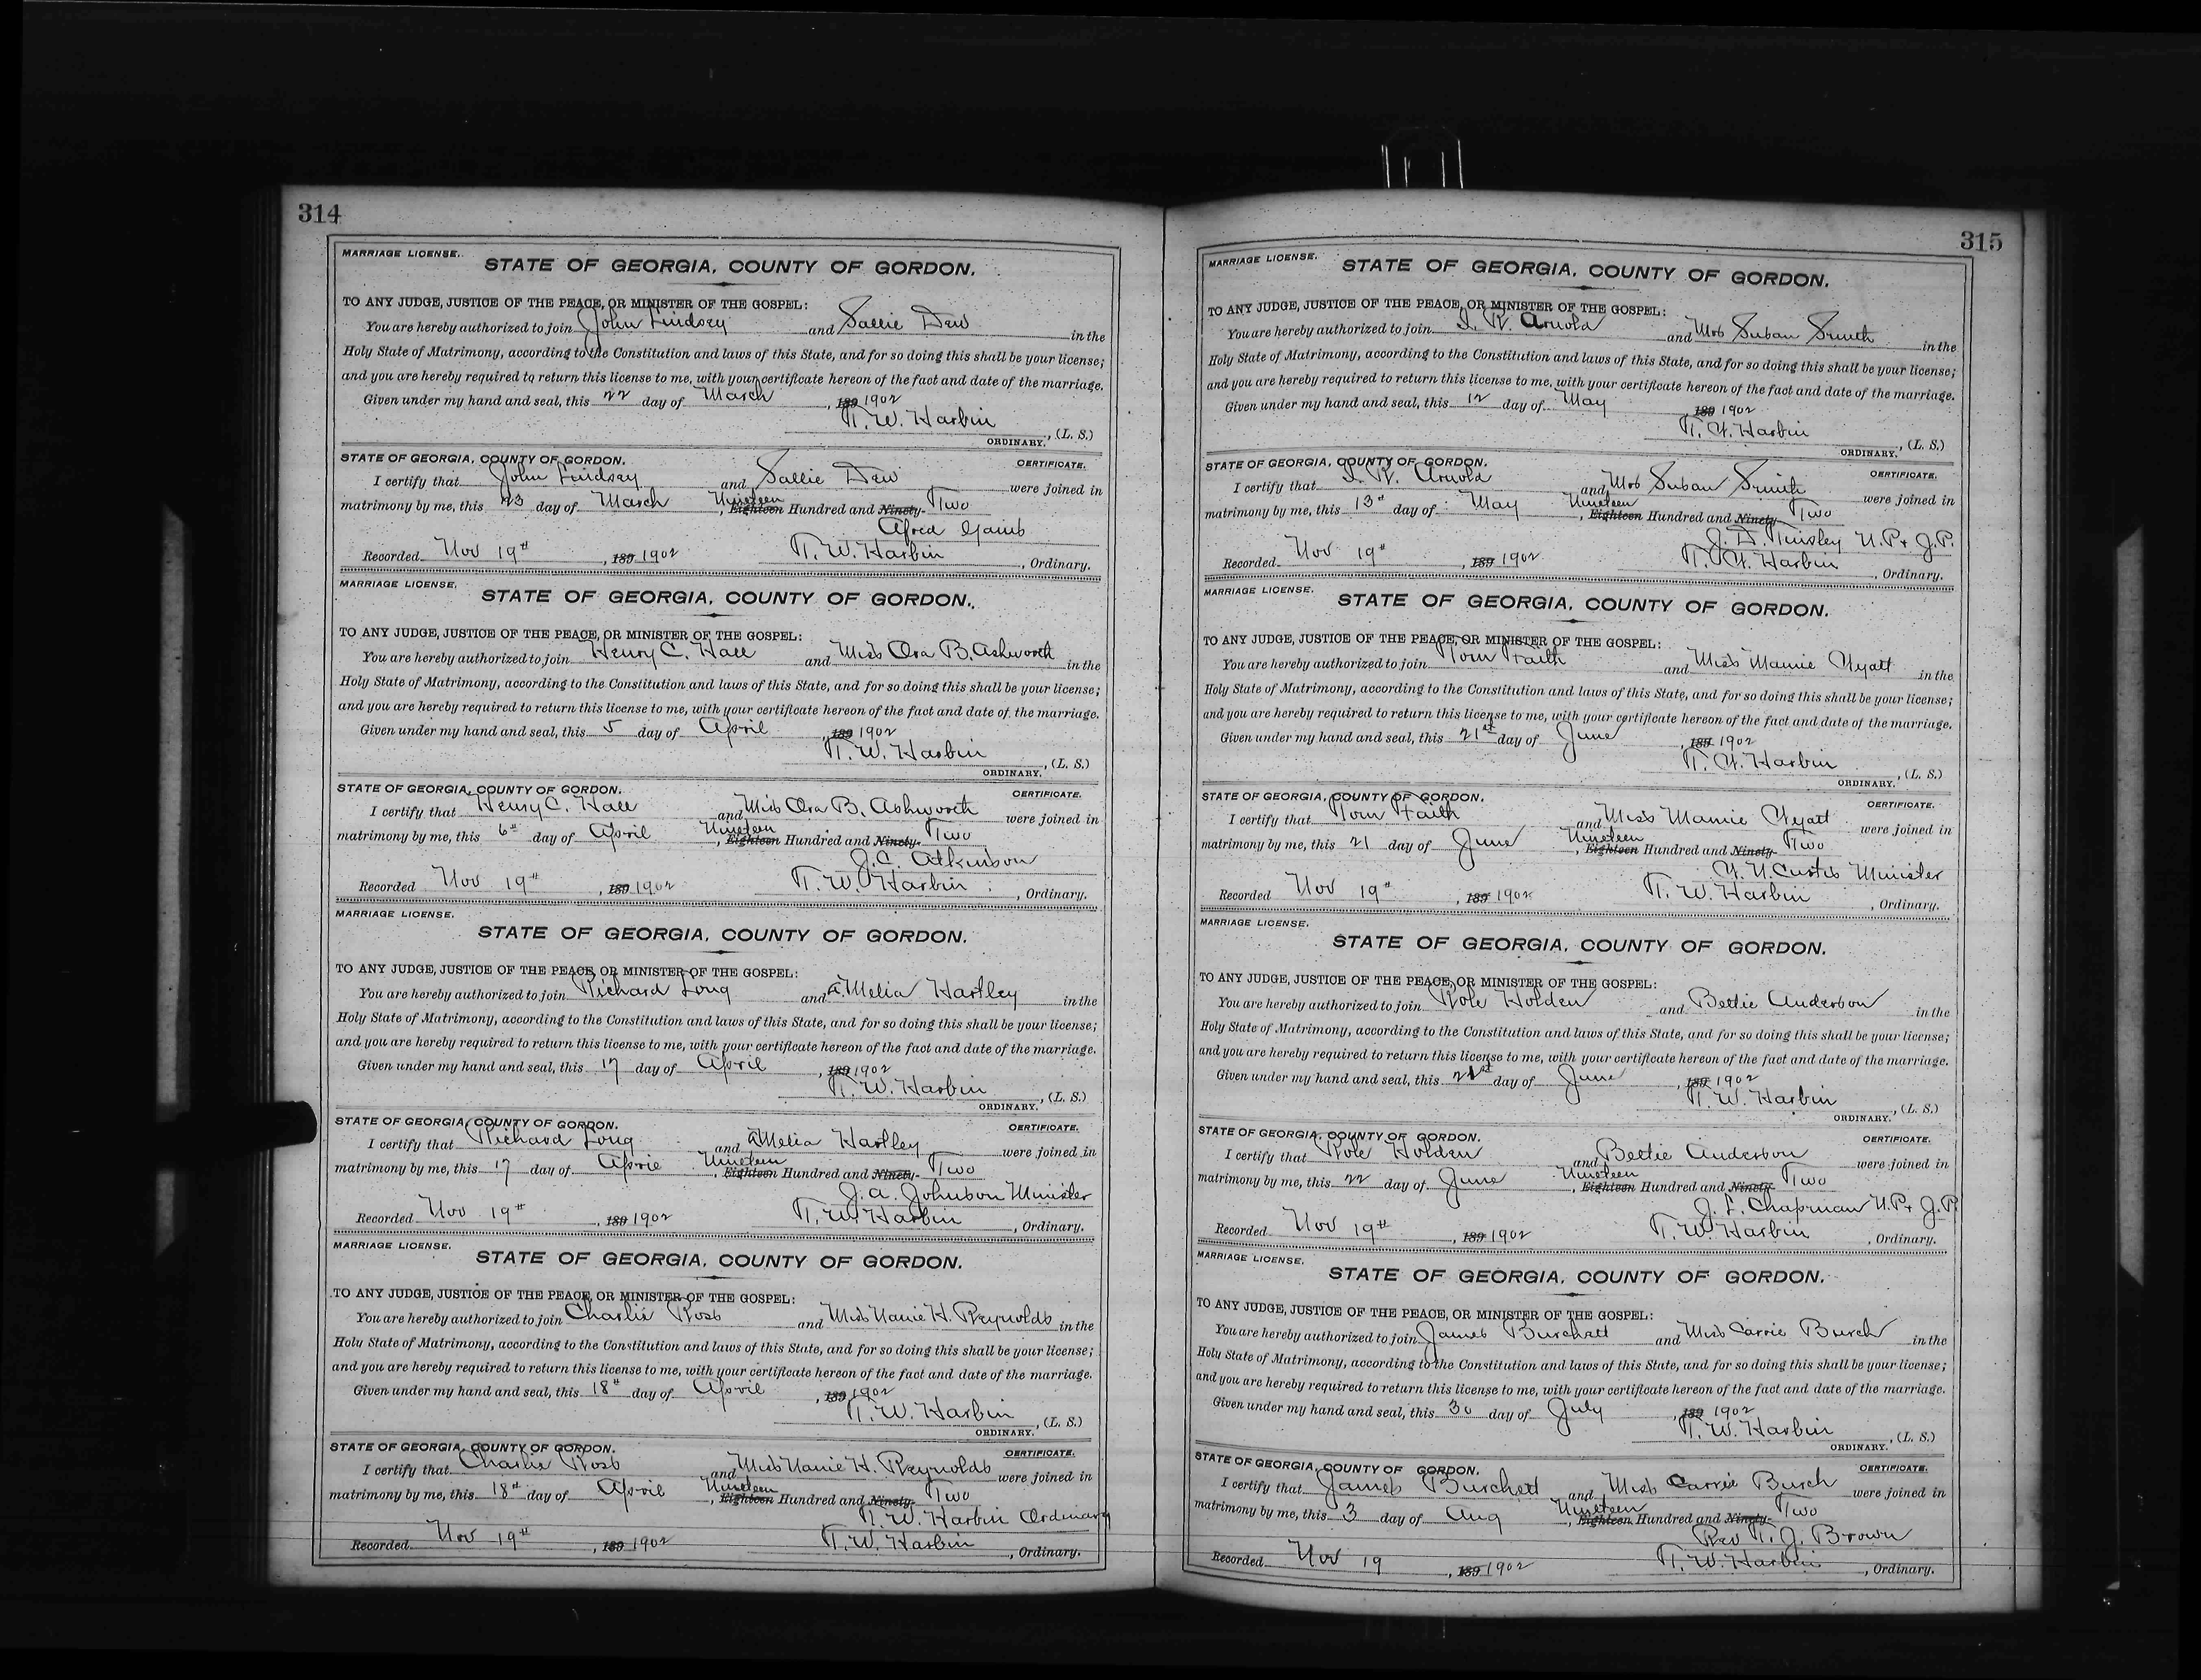 314
MARRIAGE LICENSE.
STATE OF GEORGIA, COUNTY OF GORDON.
TO ANY JUDGE, JUSTICE OF THE PEACE, OR MINISTER OF THE GOSPEL:
You are hereby authorized to join John Lindsey and Sallie Dew in the
Holy State of Matrimony, according to the Constitution and laws of this State, and for so doing this shall be your license;
and you are hereby required to return this license to me, with your certificate hereon of the fact and date of the marriage.
Given under my hand and seal, this 22 day of March, 189 1902
T. W. Harbin
ORDINARY. , (L. S.)
STATE OF GEORGIA, COUNTY OF GORDON. CERTIFICATE.
I certify that John Lindsay and Sallie Dew were joined in
matrimony by me, this 23 day of March, Nineteen Eighteen Hundred and Ninety- Two
Afred
Recorded Nov 19th, 189 1902 T. W. Harbin, Ordinary.
MARRIAGE LICENSE.
STATE OF GEORGIA, COUNTY OF GORDON.
TO ANY JUDGE, JUSTICE OF THE PEACE, OR MINISTER OF THE GOSPEL:
You are hereby authorized to join Henry C. Hall and Miss Ora B. Ashworth in the
Holy State of Matrimony, according to the Constitution and laws of this State, and for so doing this shall be your license;
and you are hereby required to return this license to me, with your certificate hereon of the fact and date of the marriage.
Given under my hand and seal, this 5 day of April, 189 1902
T. W. Harbin
ORDINARY. , (L. S.)
STATE OF GEORGIA, COUNTY OF GORDON. CERTIFICATE.
I certify that Henry C. Hall and Miss Ora B. Ashworth were joined in
matrimony by me, this 6th day of April, Nineteen Eighteen Hundred and Ninety- Two
J. C. Atkinson
Recorded Nov 19th, 189 1902 T. W. Harbin, Ordinary.
MARRIAGE LICENSE.
STATE OF GEORGIA, COUNTY OF GORDON.
TO ANY JUDGE, JUSTICE OF THE PEACE, OR MINISTER OF THE GOSPEL:
You are hereby authorized to join Richard Long and A. Melia Hartley in the
Holy State of Matrimony, according to the Constitution and laws of this State, and for so doing this shall be your license;
and you are hereby required to return this license to me, with your certificate hereon of the fact and date of the marriage.
Given under my hand and seal, this 17 day of April, 189 1902
T. W. Harbin
ORDINARY. , (L. S.)
STATE OF GEORGIA, COUNTY OF GORDON. CERTIFICATE.
I certify that Richard Long and A Melia Hartley were joined in
matrimony by me, this 17 day of April Nineteen, Eighteen Hundred and Ninety- Two
J. A. Johnson Minister
Recorded Nov 19th, 189 1902 T. W. Harbin, Ordinary.
MARRIAGE LICENSE.
STATE OF GEORGIA, COUNTY OF GORDON.
TO ANY JUDGE, JUSTICE OF THE PEACE, OR MINISTER OF THE GOSPEL:
You are hereby authorized to join Charlie Ross and Miss Nanie H. Reynolds in the
Holy State of Matrimony, according to the Constitution and laws of this State, and for so doing this shall be your license;
and you are hereby required to return this license to me, with your certificate hereon of the fact and date of the marriage.
Given under my hand and seal, this 18th day of April, 189 1902
T. W. Harbin
ORDINARY. , (L. S.)
STATE OF GEORGIA, COUNTY OF GORDON. CERTIFICATE.
I certify that Charlie Ross and Miss Nanie H. Reynolds were joined in
matrimony by me, this 18th day of April Nineteen, Eighteen Hundred and Ninety- Two
T. W. Harbin Ordinary
Recorded Nov 19th, 189 1902 T. W. Harbin, Ordinary.
315
MARRIAGE LICENSE.
STATE OF GEORGIA, COUNTY OF GORDON.
TO ANY JUDGE, JUSTICE OF THE PEACE, OR MINISTER OF THE GOSPEL:
You are hereby authorized to join Arnold and Mrs Susan Smith in the
Holy State of Matrimony, according to the Constitution and laws of this State, and for so doing this shall be your license;
and you are hereby required to return this license to me, with your certificate hereon of the fact and date of the marriage.
Given under my hand and seal, this 12 day of May, 189 1902
T. W. Harbin
ORDINARY. , (L. S.)
STATE OF GEORGIA, COUNTY OF GORDON. CERTIFICATE.
I certify that Arnold and Mrs Susan Smith were joined in
matrimony by me, this 13th day of May Nineteen, Eighteen Hundred and Ninety- Two
J. D. Tinsley N.P. & J.P.
Recorded Nov 19th, 189 1902 T. W. Harbin, Ordinary.
MARRIAGE LICENSE.
STATE OF GEORGIA, COUNTY OF GORDON.
TO ANY JUDGE, JUSTICE OF THE PEACE, OR MINISTER OF THE GOSPEL:
You are hereby authorized to join Tom Faith and Miss Mamie Wyatt in the
Holy State of Matrimony, according to the Constitution and laws of this State, and for so doing this shall be your license;
and you are hereby required to return this license to me, with your certificate hereon of the fact and date of the marriage.
Given under my hand and seal, this 21st day of June, 189 1902
T. W. Harbin
ORDINARY. , (L. S.)
STATE OF GEORGIA, COUNTY OF GORDON. CERTIFICATE.
I certify that Tom Faith and Miss Mamie Wyatt were joined in
matrimony by me, this 21 day of June Nineteen, Eighteen Hundred and Ninety- Two
W. N. Curtis Minister
Recorded Nov 19th, 189 1902 T. W. Harbin, Ordinary.
MARRIAGE LICENSE.
STATE OF GEORGIA, COUNTY OF GORDON.
TO ANY JUDGE, JUSTICE OF THE PEACE, OR MINISTER OF THE GOSPEL:
You are hereby authorized to join Role Holden and Bettie Anderson in the
Holy State of Matrimony, according to the Constitution and laws of this State, and for so doing this shall be your license;
and you are hereby required to return this license to me, with your certificate hereon of the fact and date of the marriage.
Given under my hand and seal, this 21st day of June, 189 1902
T. W. Harbin
ORDINARY. , (L. S.)
STATE OF GEORGIA, COUNTY OF GORDON. CERTIFICATE.
I certify that Role Holden and Bettie Anderson were joined in
matrimony by me, this 22 day of June Nineteen, Eighteen Hundred and Ninety- Two
J. L. Chapman N.P. & J.P.
Recorded Nov 19th, 189 1902 T. W. Harbin, Ordinary.
MARRIAGE LICENSE.
STATE OF GEORGIA, COUNTY OF GORDON.
TO ANY JUDGE, JUSTICE OF THE PEACE, OR MINISTER OF THE GOSPEL:
You are hereby authorized to join James Burchett and Miss Carrie Burch in the
Holy State of Matrimony, according to the Constitution and laws of this State, and for so doing this shall be your license;
and you are hereby required to return this license to me, with your certificate hereon of the fact and date of the marriage.
Given under my hand and seal, this 30 day of July, 189 1902
T. W. Harbin
ORDINARY. , (L. S.)
STATE OF GEORGIA, COUNTY OF GORDON. CERTIFICATE.
I certify that James Burchett and Miss Carrie Burch were joined in
matrimony by me, this 3 day of Aug Nineteen, Eighteen Hundred and Ninety- Two
Rev T. J. Brown
Recorded Nov 19, 189 1902 T. W. Harbin, Ordinary.